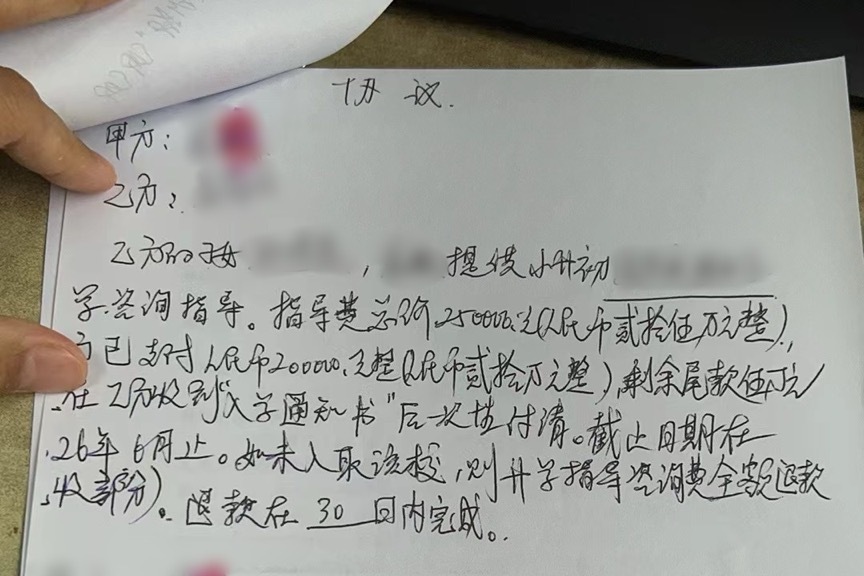 协议.
甲方:
乙方:
乙方的子女 , 提供小升初
学咨询指导。指导费总价250000.元(人民币贰拾伍万元整),
方已支付人民币200000.元整(人民币贰拾万元整),剩余尾款伍万元
在乙方收到"入学通知书"后一次性付清。截止日期在
26年6月止。如未入取该校,则升学指导咨询费全额退款
收部分)。退款在 30 日内完成。